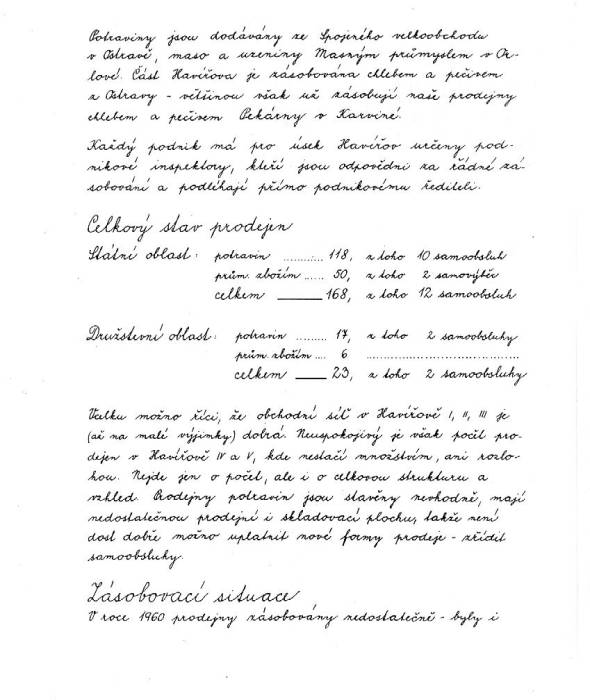 Potraviny jsou dodávány ze Spojeného velkoobchodu
v Ostravě, maso a uzeniny Masným průmyslem v Or-
lové. Část Havířova je zásobována chlebem a pečivem
z Ostravy - většinou však už zásobují naše prodejny
chlebem a pečivem Pekárny v Karviné.
Každý podnik má pro úsek Havířov určeny pod-
nikové inspektory, kteří jsou odpovědni za řádné zá-
sobování a podléhají přímo podnikovému řediteli.
Celkový stav prodejen
Státní oblast: potravin .......... 118, z toho 10 samoobsluh
prům. zbožím ...... 50, z toho 2 samovýběr
celkem _____ 168, z toho 12 samoobsluh
Družstevní oblast: potravin ......... 17, z toho 2 samoobsluhy
prům. zbožím .... 6 .......................................
celkem ____ 23, z toho 2 samoobsluhy
Vcelku možno říci, že obchodní síť v Havířově I, II, III je
(až na malé výjimky) dobrá. Neuspokojivý je však počet pro-
dejen v Havířově IV a V, kde nestačí množstvím, ani rozlo-
hou. Nejde jen o počet, ale i o celkovou strukturu a
vzhled. Prodejny potravin jsou stavěny nevhodně, mají
nedostatečnou prodejní i skladovací plochu, takže není
dost dobře možno uplatnit nové formy prodeje - zřídit
samoobsluhy.
Zásobovací situace
V roce 1960 prodejny zásobovány nedostatečně - byly i